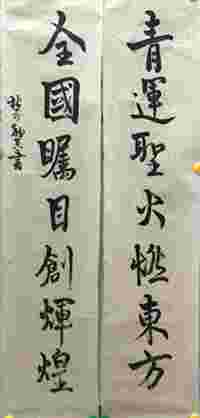 青運聖火燃東方
全國矚目創輝煌